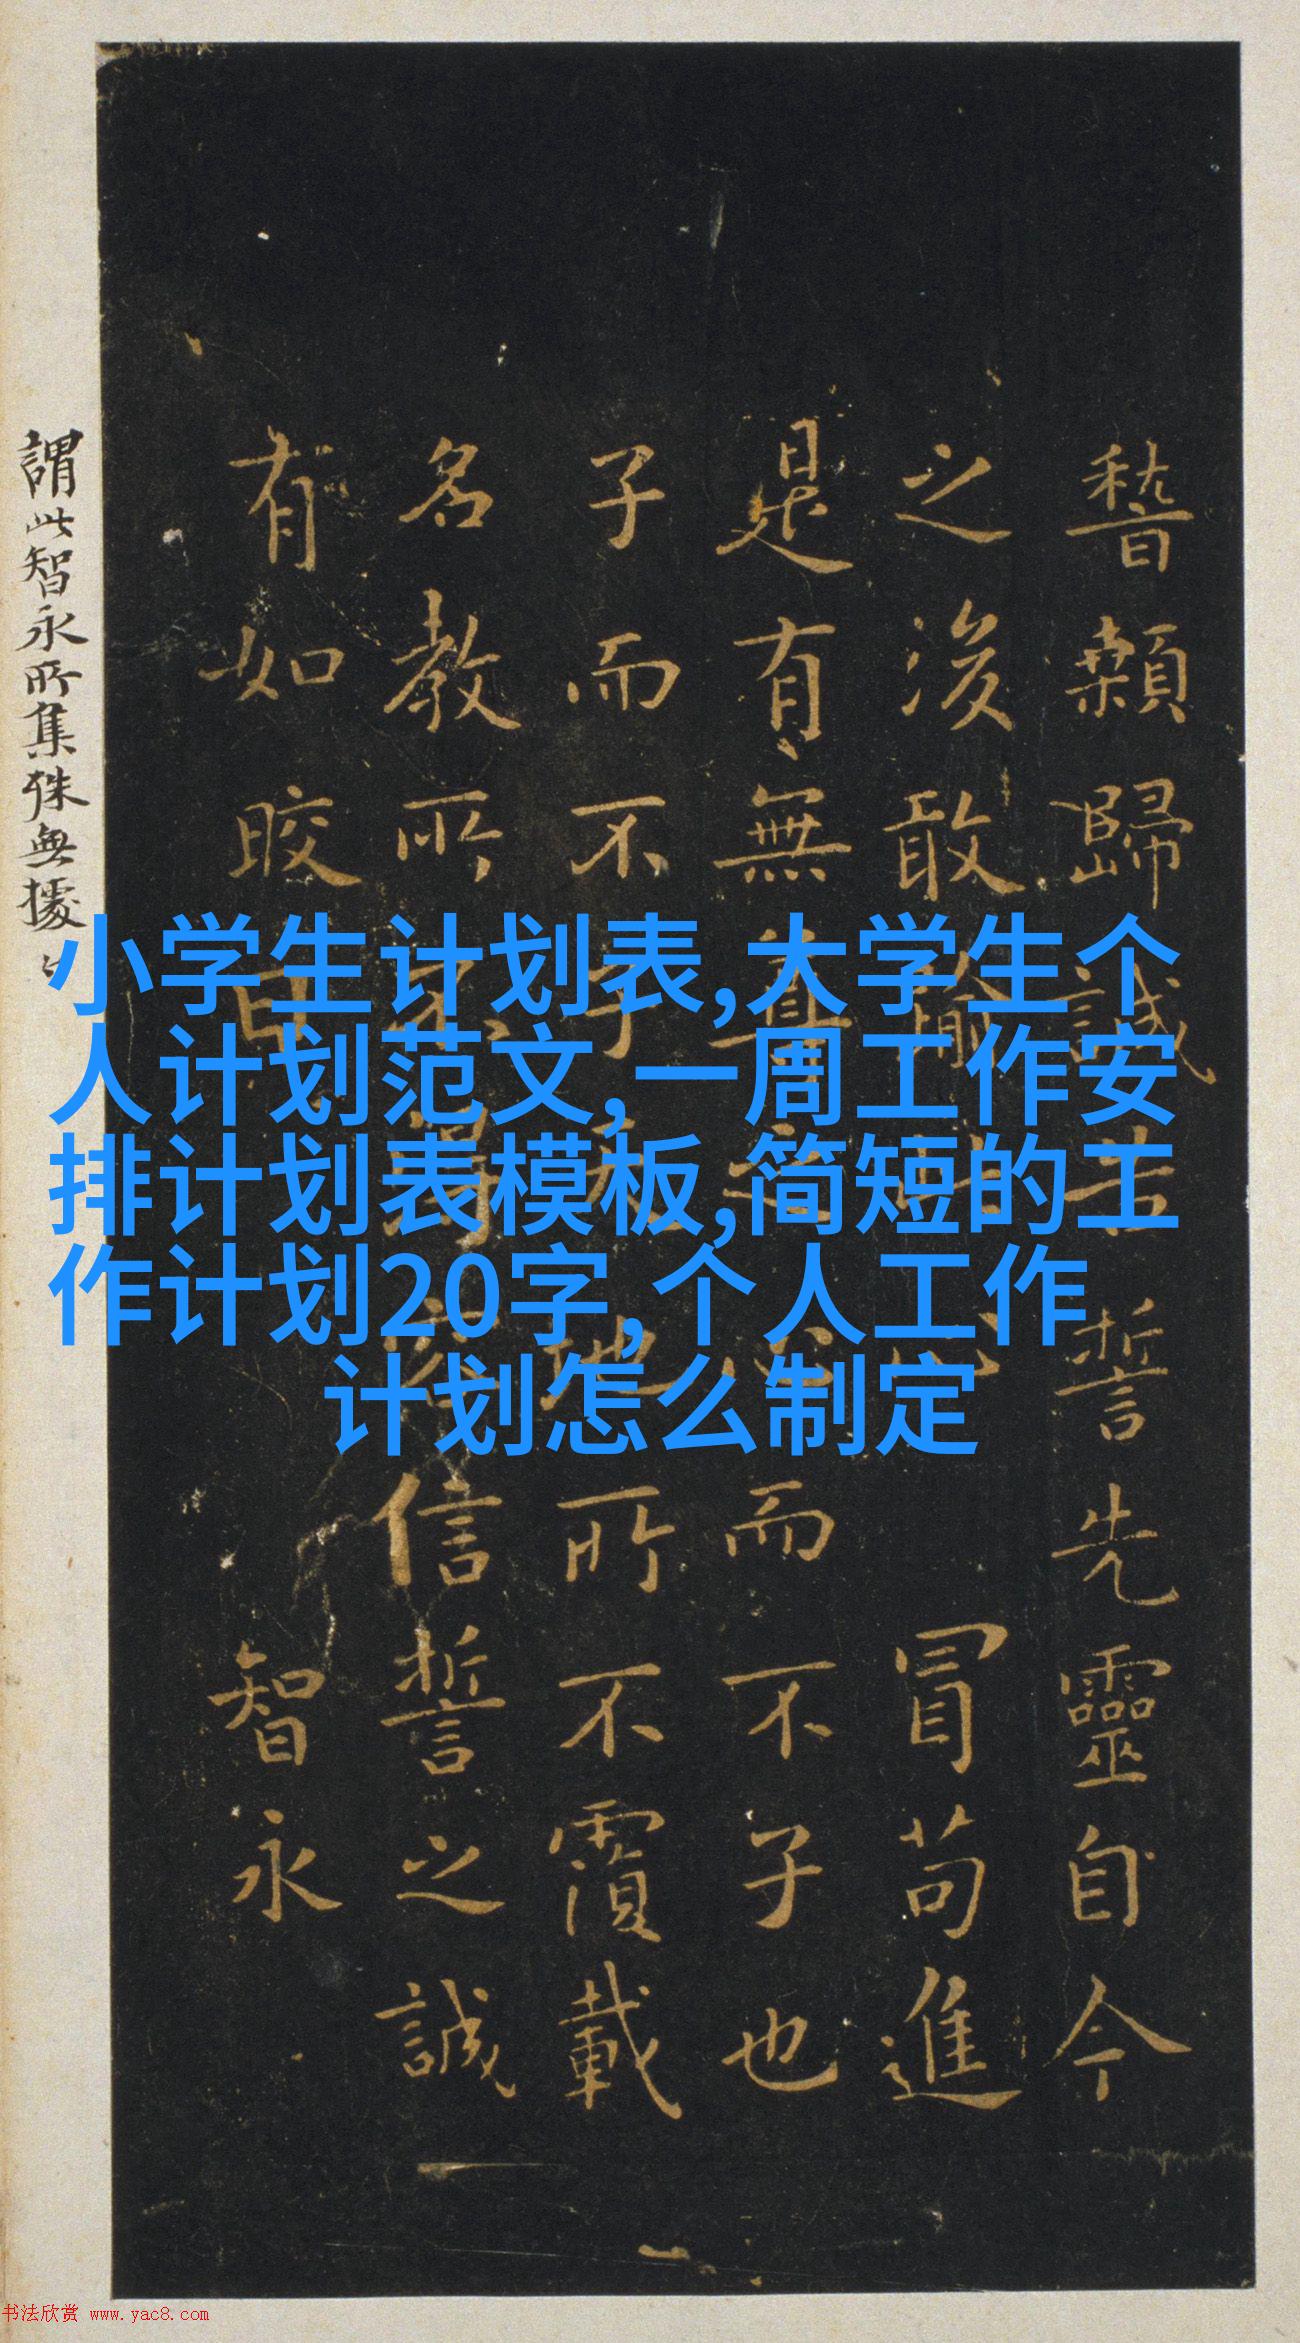 稽顙歸誠告誓先靈自今
之後敢渝此心 冒苟進
是有無尊之心而不子也
子而不子天地所不覆載
名教所不得容信誓之誠
有如皎日 智永
謂此智永所集殊無據
小学生计划表,大学生个
人计划范文,一周工作安
排计划表模板,简短的工
作计划20字,个人工作
计划怎么制定
书法欣赏 www.yac8.com